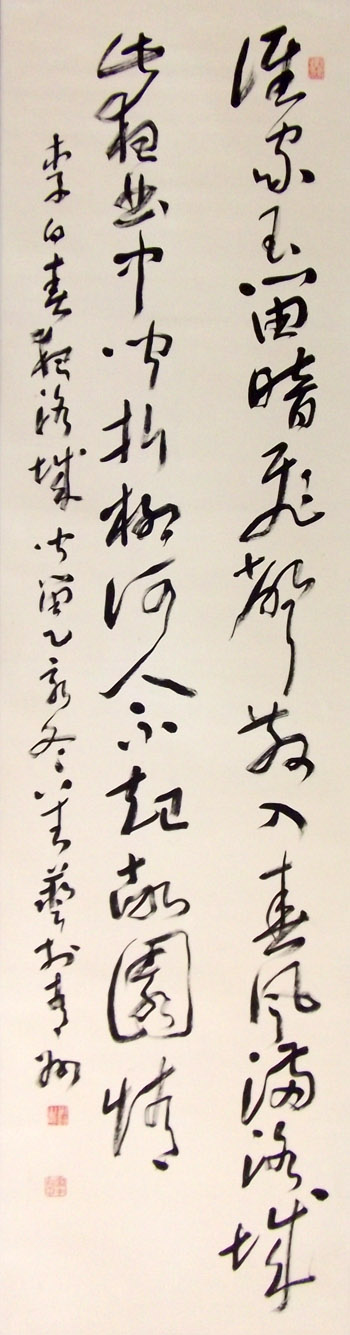 誰家玉笛暗飛聲散入春風滿洛城
此夜曲中聞折柳何人不起故園情
李白春夜洛城聞笛乙亥冬